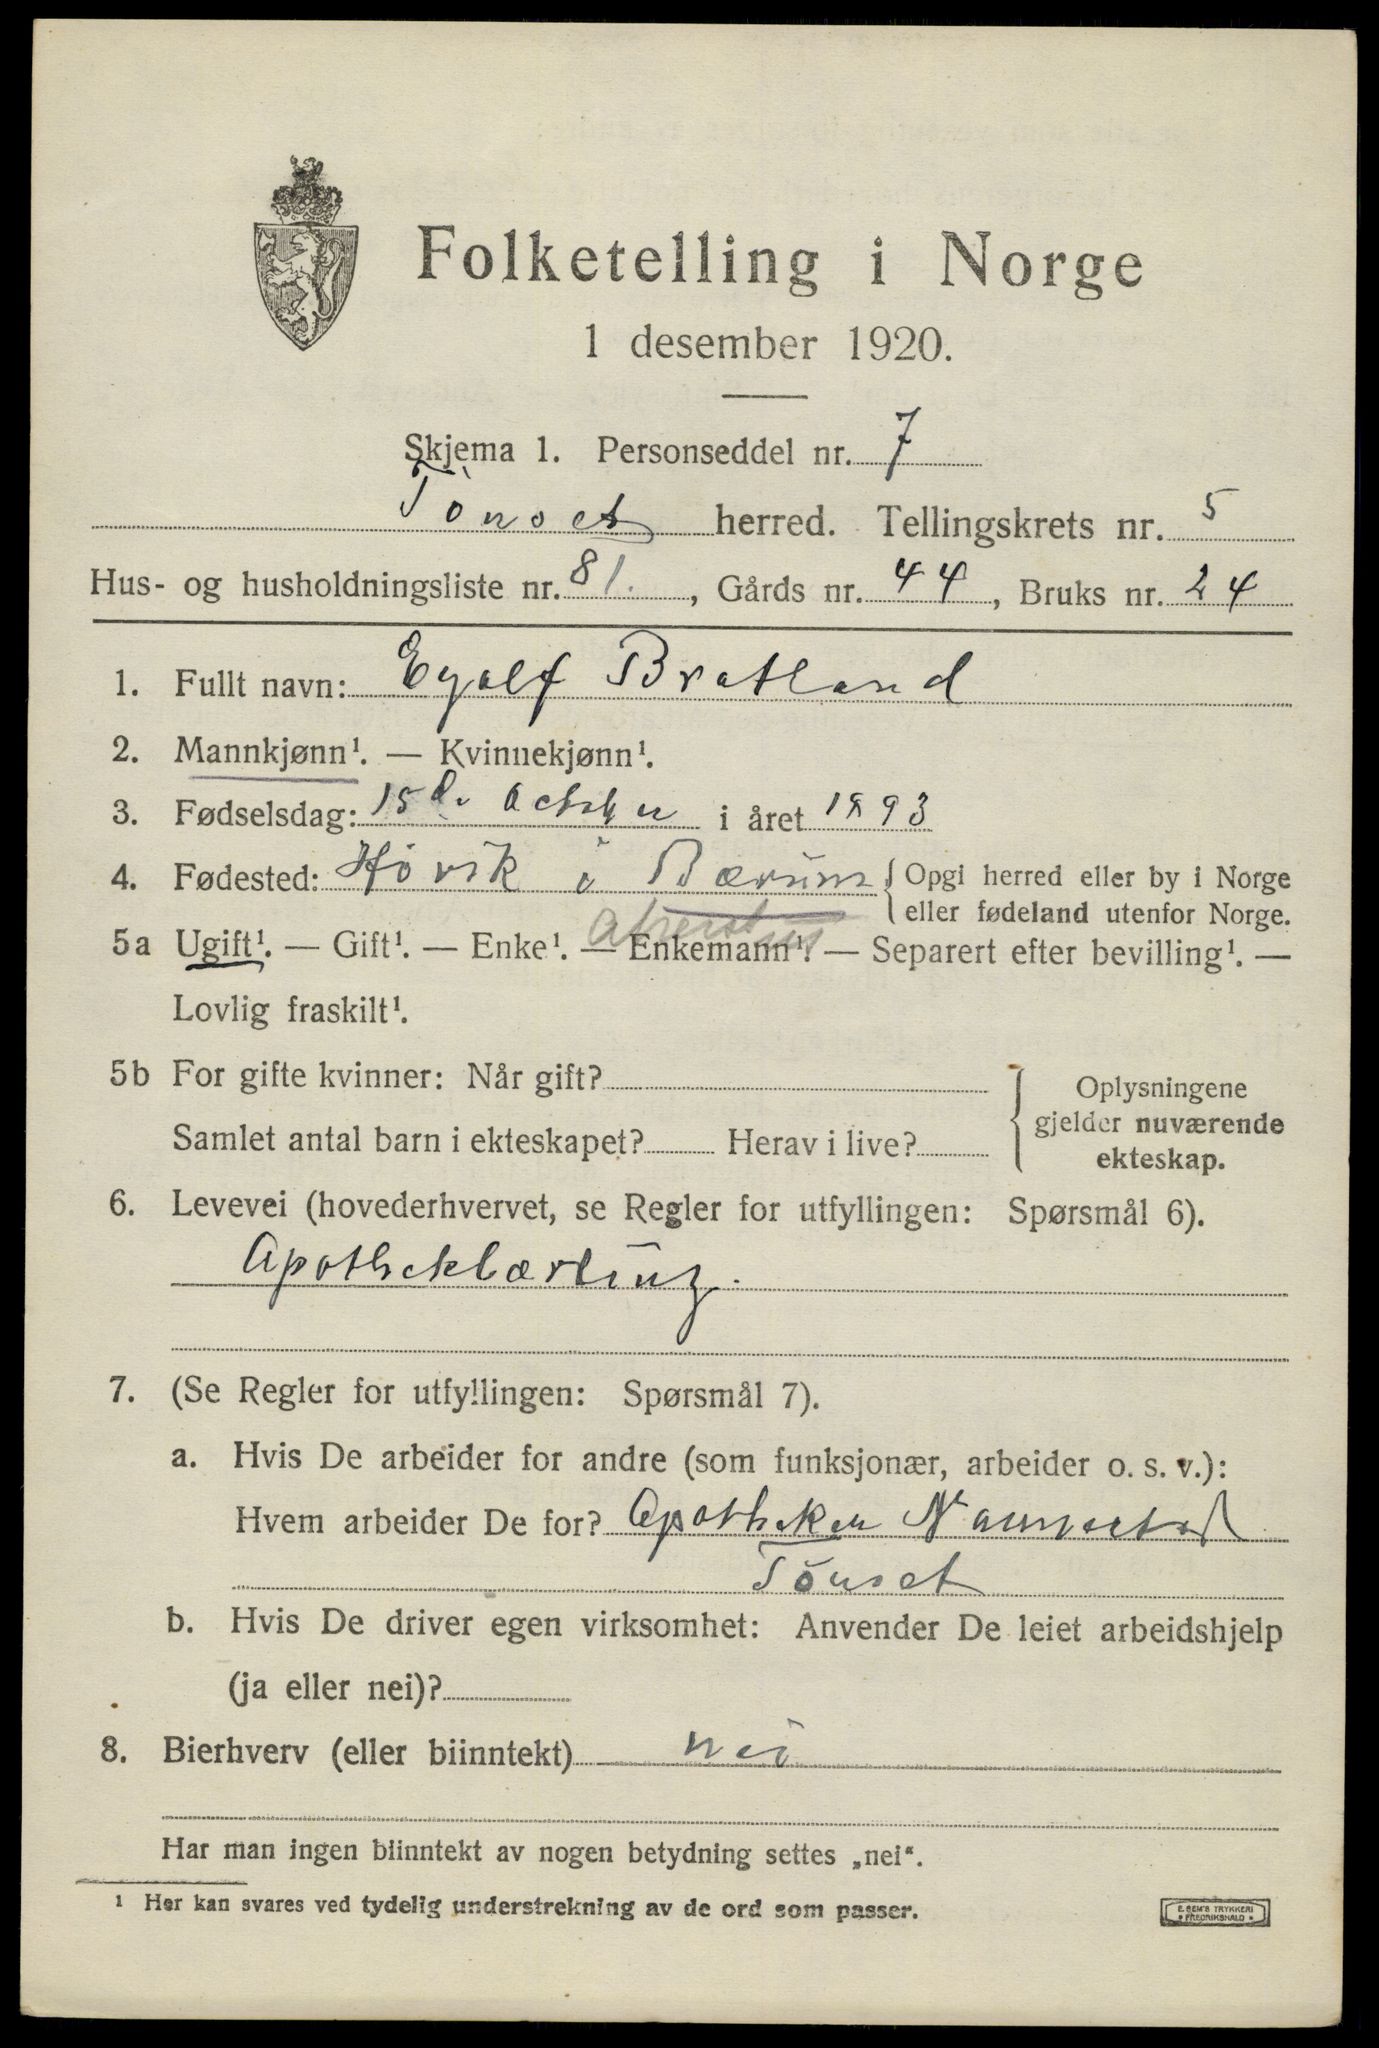 Folketelling i Norge
1 desember 1920.
Skjema 1. Personseddel nr. 7
Tönset herred. Tellingskrets nr. 5
Hus- og husholdningsliste nr. 81. , Gårds nr. 44, Bruks nr. 24
1. Fullt navn: Eyolf Bratland
2. Mannkjønn¹. — Kvinnekjønn¹.
3. Fødselsdag: 15de October i året 1893
4. Fødested: Hövik i Bærum { Opgi herred eller by i Norge
eller fødeland utenfor Norge.
Akershus
5a Ugift¹. — Gift¹. — Enke¹. — Enkemann¹. — Separert efter bevilling¹. —
Lovlig fraskilt¹.
5b For gifte kvinner: Når gift?
Samlet antal barn i ekteskapet? Herav i live?
Oplysningene
gjelder nuværende
ekteskap.
6. Levevei (hovederhvervet, se Regler for utfyllingen: Spørsmål 6).
Apothekbærling.
7. (Se Regler for utfyllingen: Spørsmål 7).
a. Hvis De arbeider for andre (som funksjonær, arbeider o. s. v.):
Hvem arbeider De for? Apotheker
Tönset
b. Hvis De driver egen virksomhet: Anvender De leiet arbeidshjelp
(ja eller nei)?
8. Bierhverv (eller biinntekt) nei
Har man ingen biinntekt av nogen betydning settes „nei“.
¹ Her kan svares ved tydelig understrekning av de ord som passer.
E. SEM'S TRYKKERI
• FREDRIKSHALD •